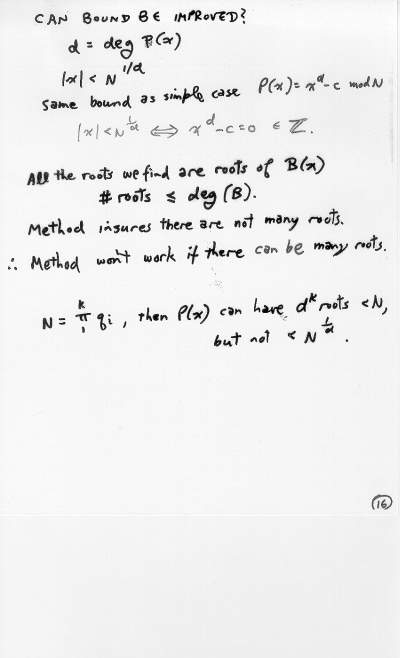 CAN BOUND BE IMPROVED?
d = deg P(x)
|x| < N^{1/d}
Same bound as simple case P(x) = x^d - c mod N
|x| < N^{1/d} ⟺ x^d - c = 0 ∈ ℤ.
All the roots we find are roots of B(x)
# roots ≤ deg(B).
Method insures there are not many roots.
∴ Method won't work if there can be many roots.
N = ∏_1^k q_i , then P(x) can have d^k roots < N,
but not < N^{1/d} .
16